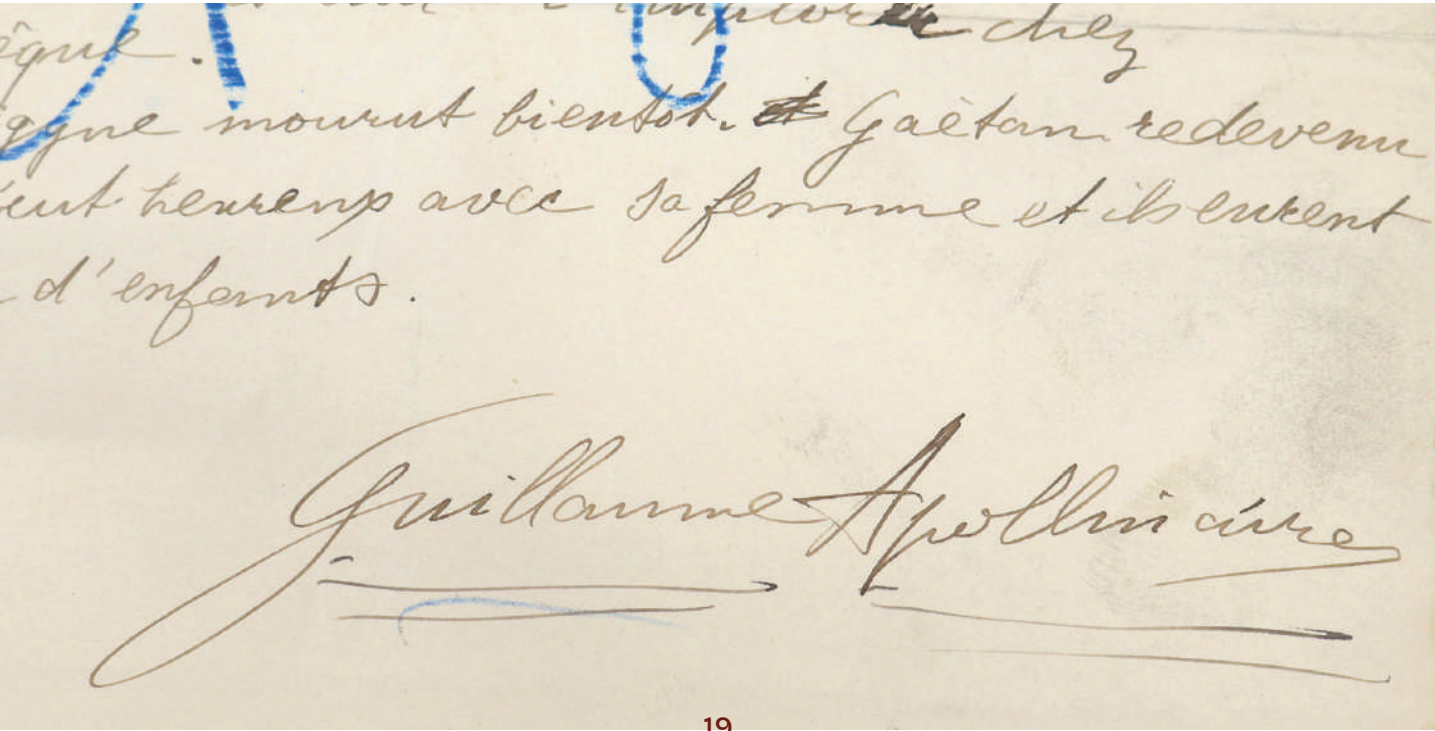 chez
êque.
mourut bientôt. et Gaëtan redevenu
heureux avec sa femme et ils eurent
d'enfants.
Guillaume Apollinaire
19